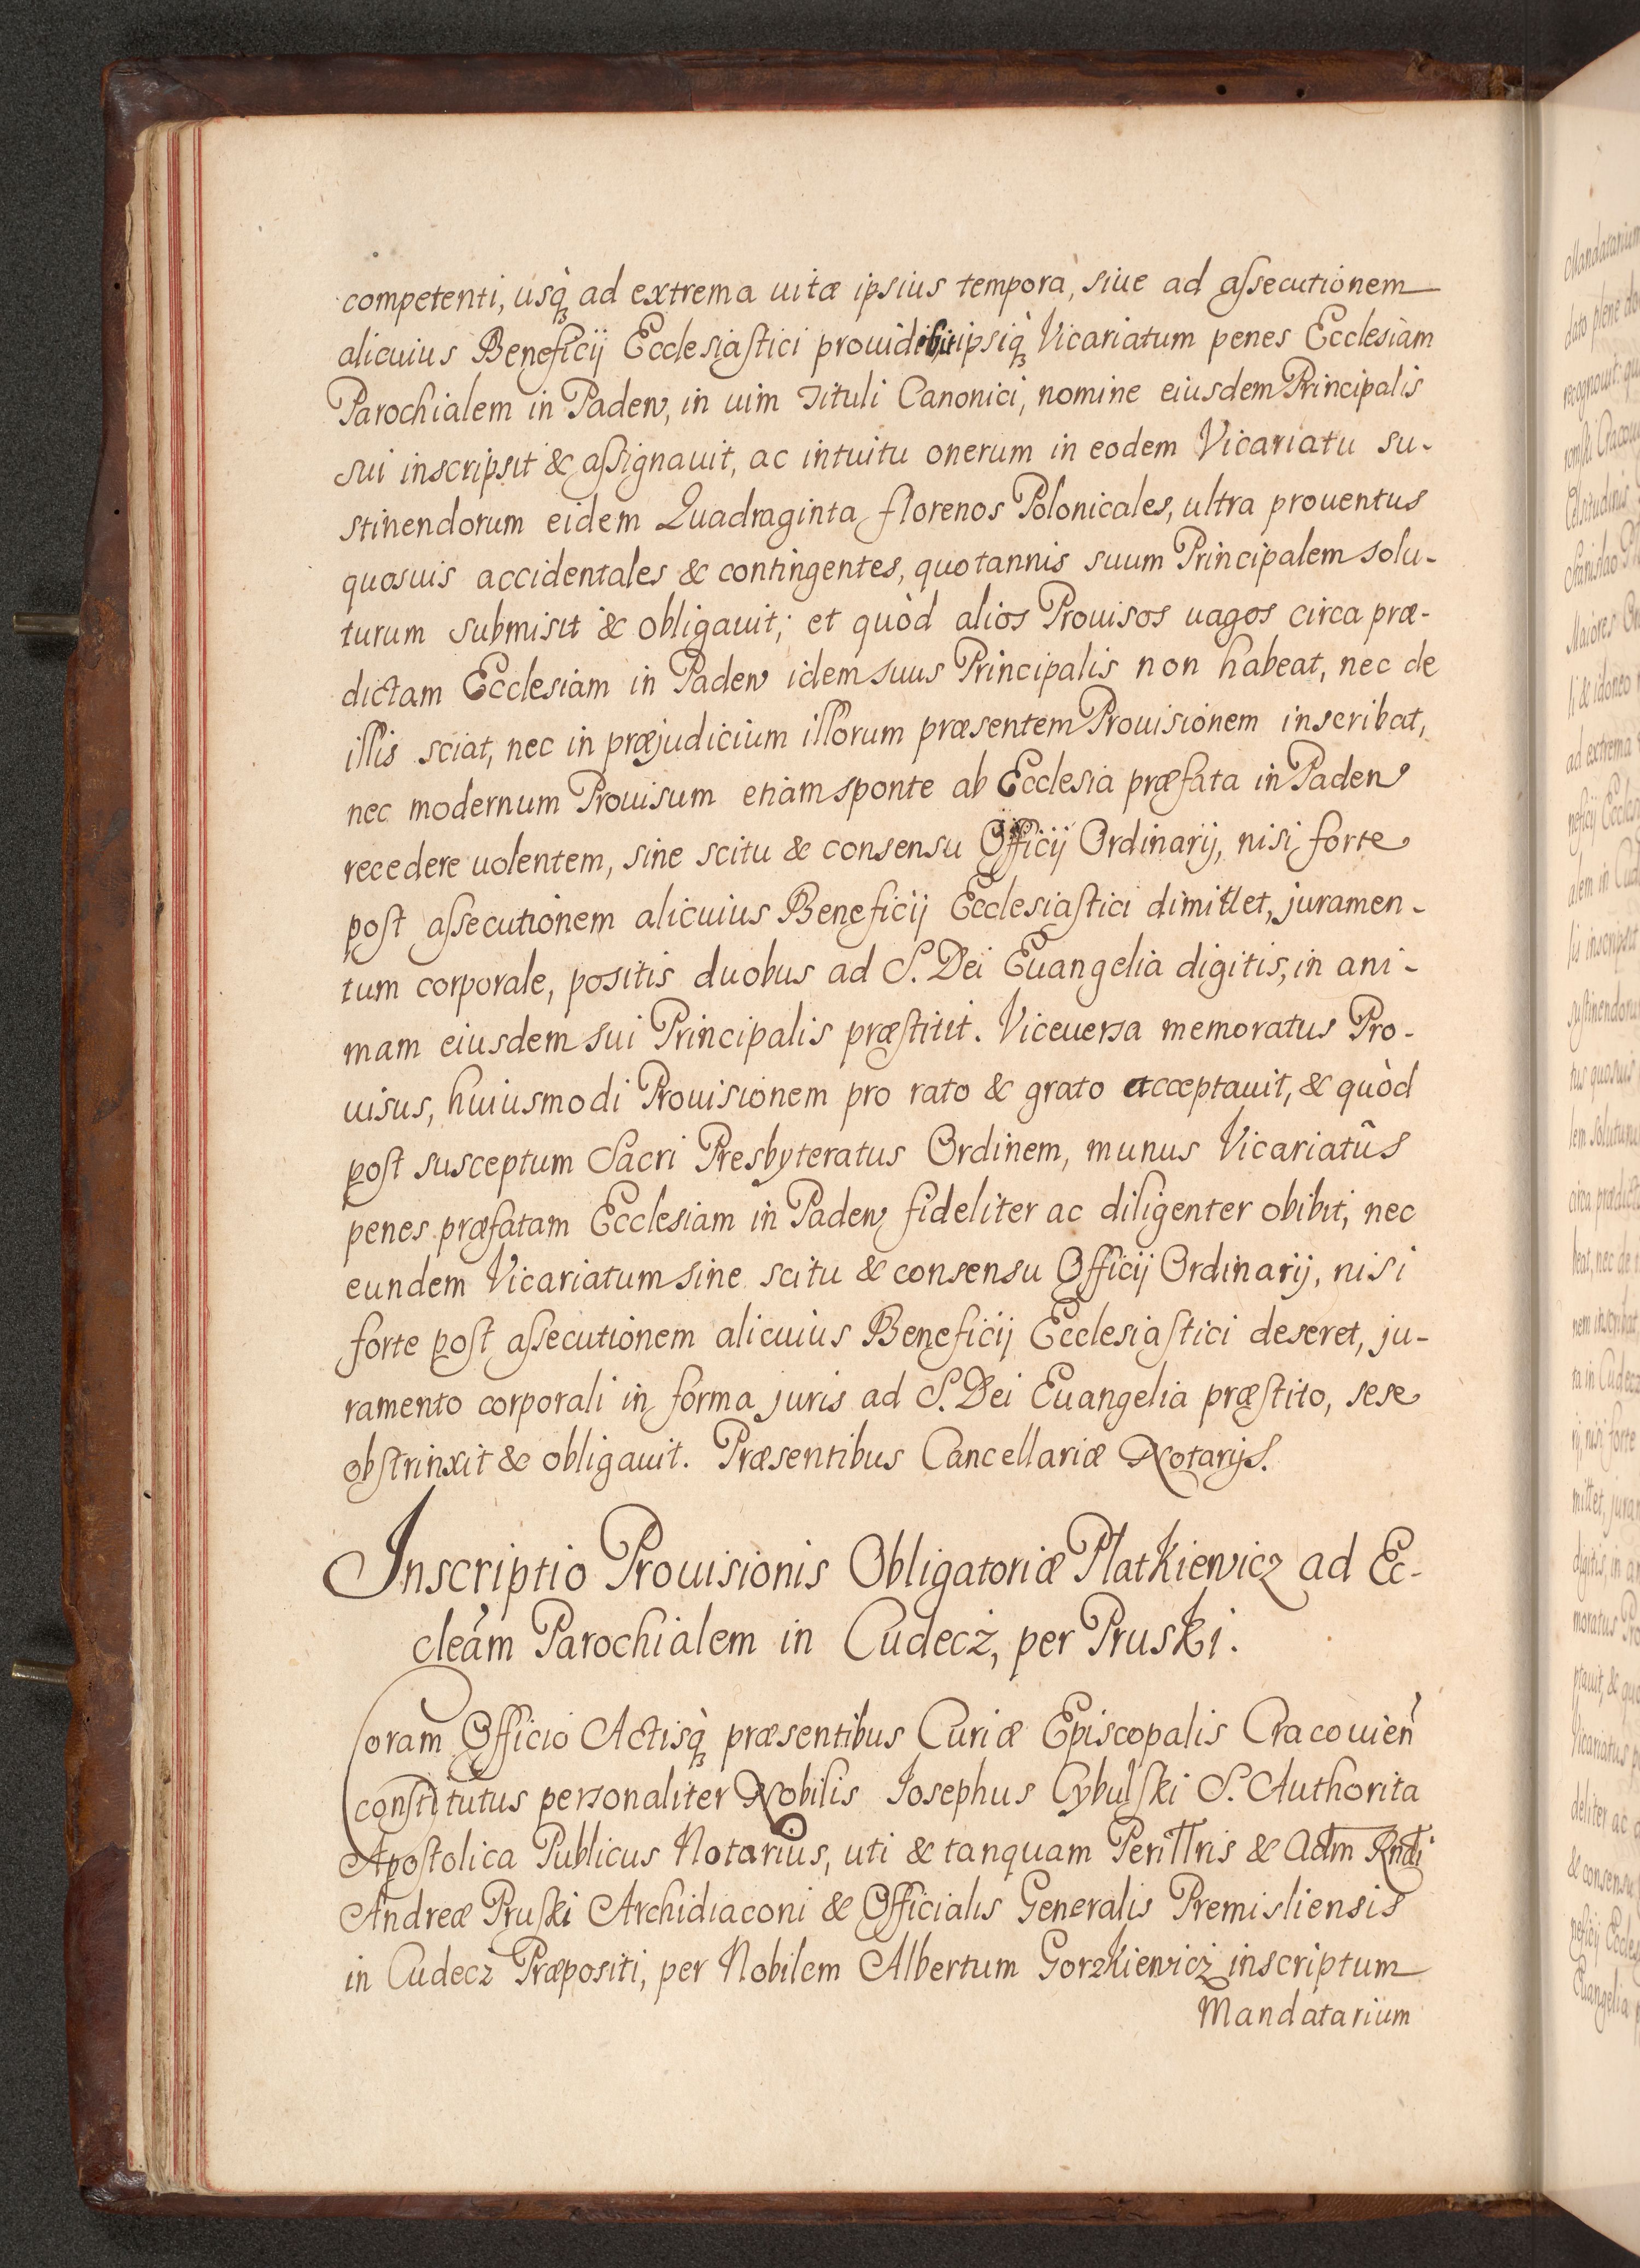 competenti, usq̀ꝫ ad extrema uitæ ipsius tempora, siue ad aſsecutionem
alicuius Beneficij Eccleſiaſtici prouidebit ipsiq̀ꝫ Vicariatum penes Ecclesiam
Parochialem in Padew, in uim Tituli Canonici, nomine eiusdem Principalis
sui inscripsit & aſsignauit, ac intuitu onerum in eodem Vicariatu su-
stinendorum eidem Quadraginta florenos Polonicales, ultra prouentus
quosuis accidentales & contingentes, quotannis suum Principalem solu-
turum submisit & obligauit; et quòd alios Prouisos uagos circa præ-
dictam Ecclesiam in Padew idem suus Principalis non habeat, nec de
illis sciat, nec in præjudicium illorum præsentem Prouisionem inscribat,
nec modernum Prouisum etiam sponte ab Ecclesia præfata in Padew
recedere uolentem, sine scitu & consensu Officij Ordinarij, nisi forte
poſt aſsecutionem alicuius Beneficij Ecclesiaſtici dimittet, juramen-
tum corporale, positis duobus ad S. Dei Euangelia digitis, in ani-
mam eiusdem sui Principalis præſtitit. Viceuersa memoratus Pro-
uisus, huiusmodi Prouisionem pro rato & grato acceptauit, & quòd
poſt susceptum Sacri Presbyteratus Ordinem, munus Vicariatûs
penes præfatam Ecclesiam in Padew fideliter ac diligenter obibit, nec
eundem Vicariatum sine scitu & consensu Officij Ordinarij, nisi
forte poſt aſsecutionem alicuius Beneficij Ecclesiaſtici deseret, ju-
ramento corporali in forma juris ad S. Dei Euangelia præſtito, sese
obſtrinxit & obligauit. Præsentibus Cancellariæ Notarijs.
Inscriptio Prouisionis Obligatoriæ Płatkiewicz ad Ec-
cleãm Parochialem in Cudecz, per Pruski.
Coram Officio Actisq̀ꝫ præsentibus Curiæ Episcopalis Cracouieñ
conſtitutus personaliter Nobilis Josephus Cybulſki S. Authorita
Apoſtolica Publicus Notarius, uti & tanquam Perillris & Adm Rndi
Andreæ Pruſki Archidiaconi & Officialis Generalis Premisliensis
in Cudecz Præpositi, per Nobilem Albertum Gorzkiewicz inscriptum
Mandatarium